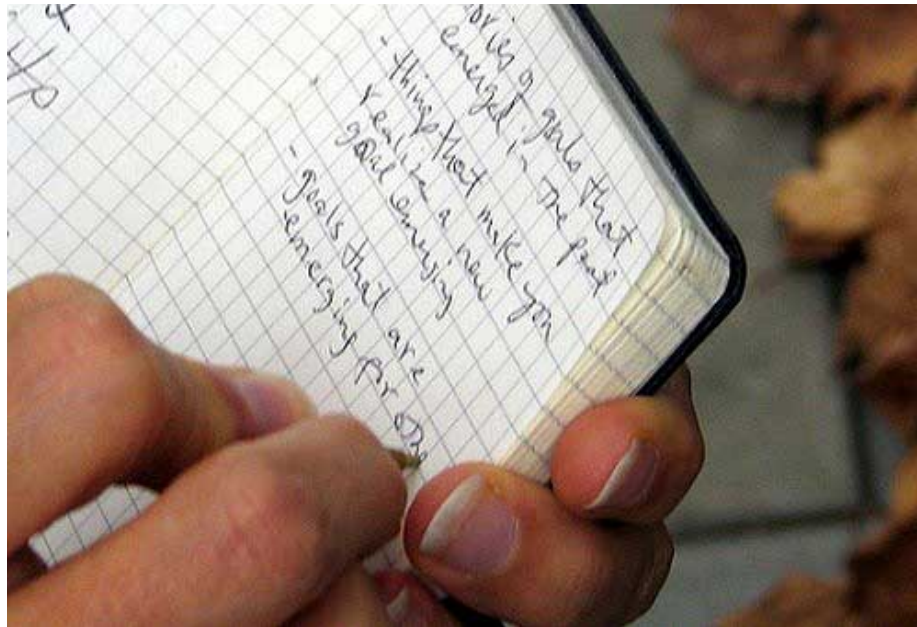 goals that
emerged in the past
- things that make you
realize a new
goal emerging
- goals that are
emerging for